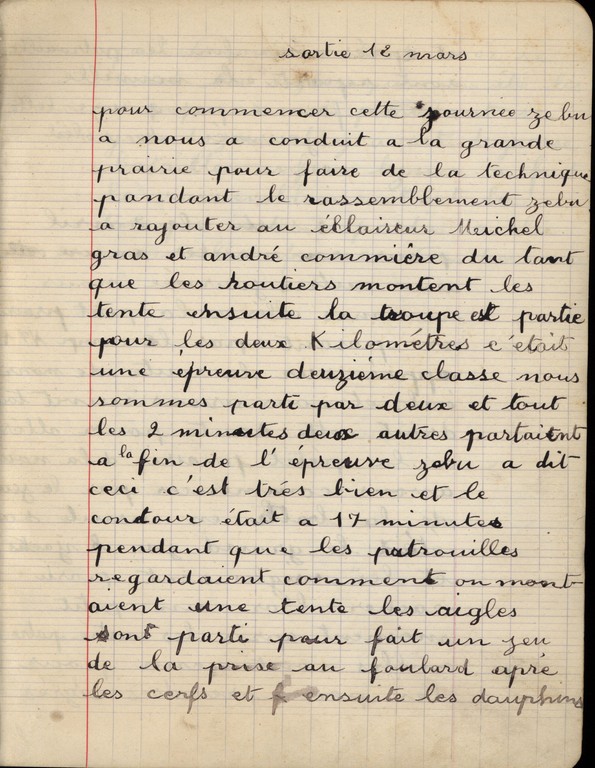 sortie 12 mars
pour commencer cette journée zebu
a nous a conduit a la grande
prairie pour faire de la technique
pandant le rassemblement zebu
a rajouter au éclaireur Meichel
gras et andré commière du tant
que les routiers montent les
tente ensuite la troupe est partie
pour les deux Kilométres c'était
une épreuve deuziéme classe nous
sommes parti par deux et tout
les 2 minutes deux autres partaient
a la fin de l'épreuve zebu a dit
ceci c'est trés bien et le
condour était a 17 minutes
pendant que les patrouilles
regardaient comment on mont
aient une tente les aigles
sont parti pour fait un jeu
de la prise au foulard apré
les cerfs et ensuite les dauphins